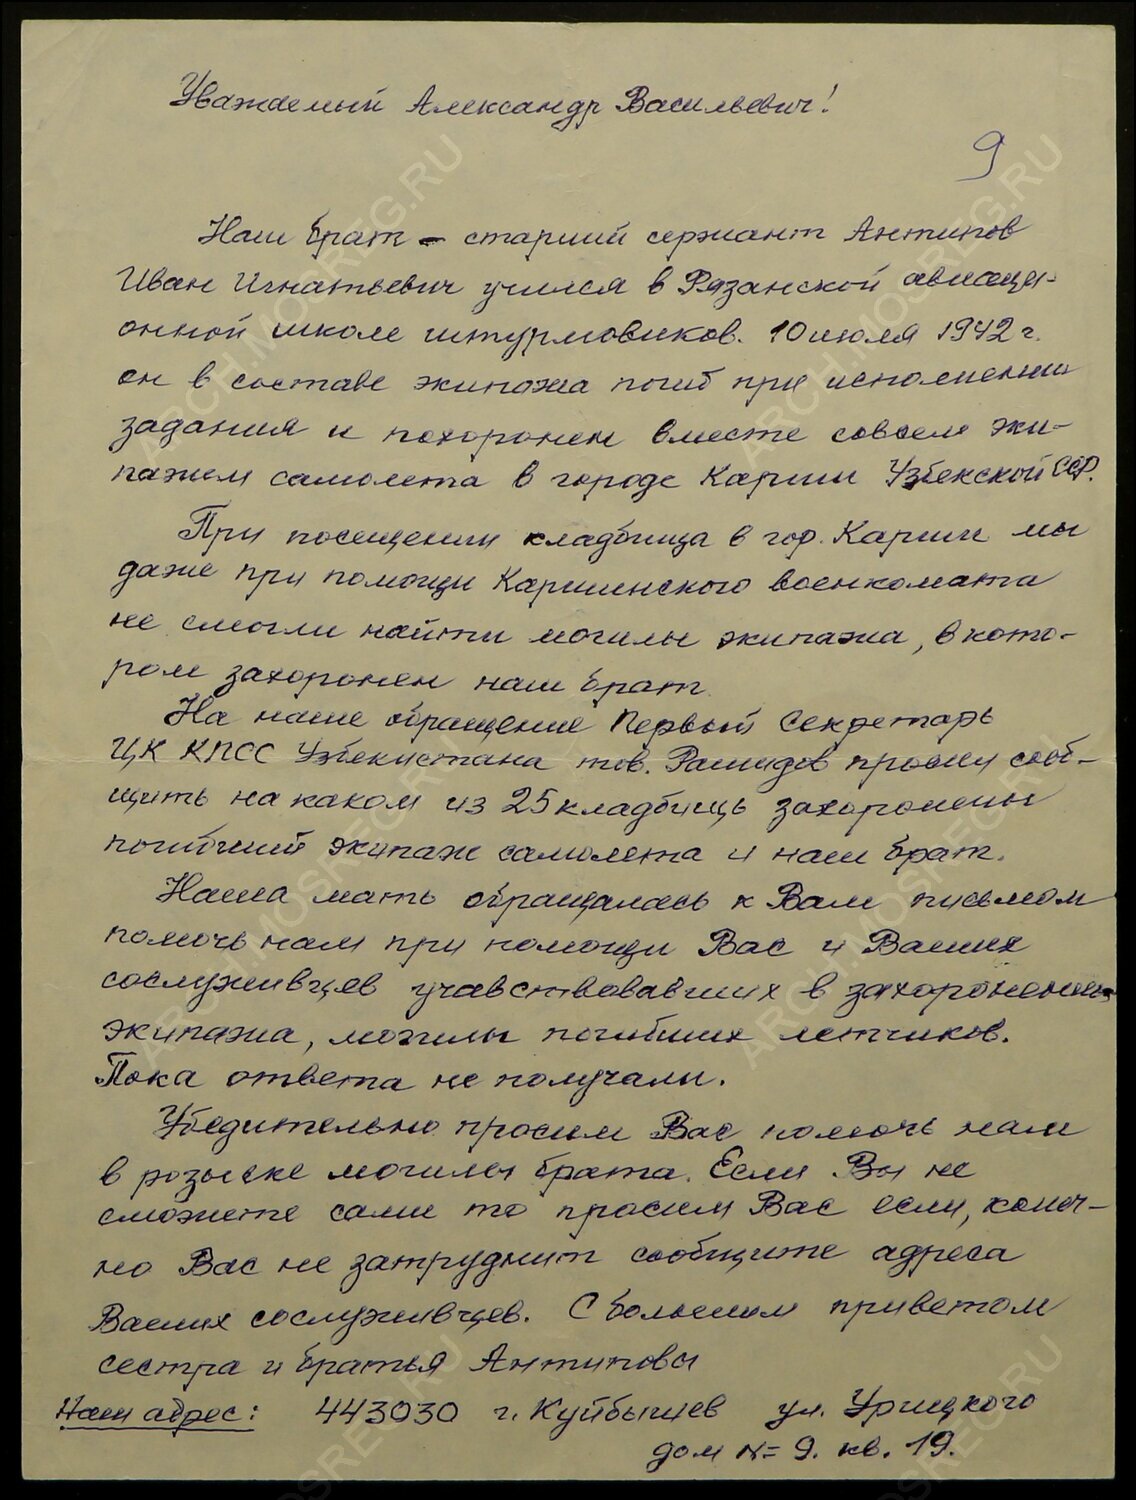 Уважаемый Александр Васильевич!
9
Наш брат - старший сержант Антипов
Иван Игнатьевич учился в Рязанской авиаци-
онной школе штурмовиков. 10 июля 1942 г.
он в составе экипажа погиб при исполнении
задания и похоронен вместе совсем эки-
пажем самолета в городе Карши Узбекской ССР.
При посещении кладбища в гор. Карши мы
даже при помощи Каршинского военкомата
не смогли найти могилы экипажа, в кото-
ром захоронен наш брат.
На наше обращение Первый Секретарь
ЦК КПСС Узбекистана тов. Рашидов просил сооб-
щить на каком из 25 кладбищь захоронены
погибший экипаж самолета и наш брат.
Наша мать обращалась к Вам письмом
помочь нам при помощи Вас и Ваших
сослуживцев учавствовавших в захоронении
экипажа, могилы погибших летчиков.
Пока ответа не получали.
Убедительно просим Вас помочь нам
в розыске могилы брата. Если Вы не
сможете сами то просим Вас если, конеч-
но Вас не затруднит сообщите адреса
Ваших сослуживцев. С большим приветом
сестра и братья Антиповы
Наш адрес: 443030 г. Куйбышев ул. Урицкого
дом № 9. кв. 19.
ARCHMOSREG.RU
ARCHMOSREG.RU
ARCHMOSREG.RU
ARCHMOSREG.RU
ARCHMOSREG.RU
ARCHMOSREG.RU